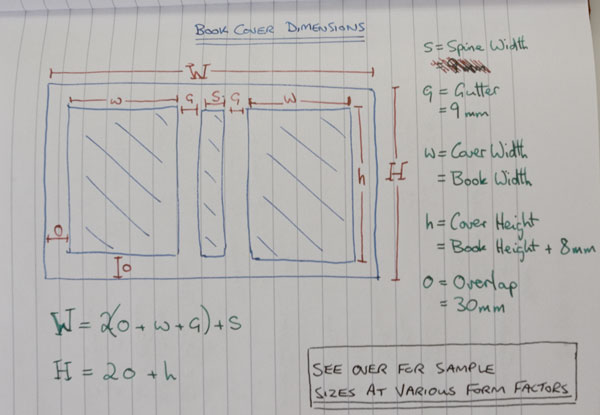 BOOK COVER DIMENSIONS
W
w G S G w
h
H
O
O
S = Spine Width
G = Gutter
= 9mm
w = Cover Width
= Book Width
h = Cover Height
= Book Height + 8mm
O = Overlap
= 30mm
W = 2(O + w + G) + S
H = 2O + h
SEE OVER FOR SAMPLE
SIZES AT VARIOUS FORM FACTORS